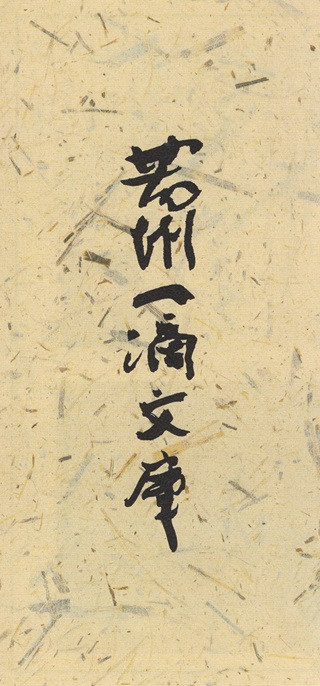 若州一滴文庫